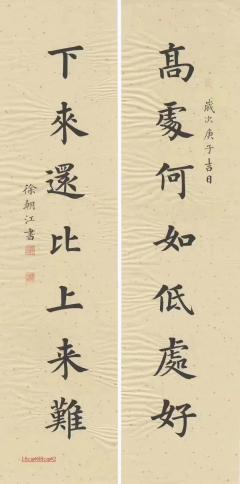 髙處何如低處好
歲次庚子吉日
下來還比上来難
徐朝江書